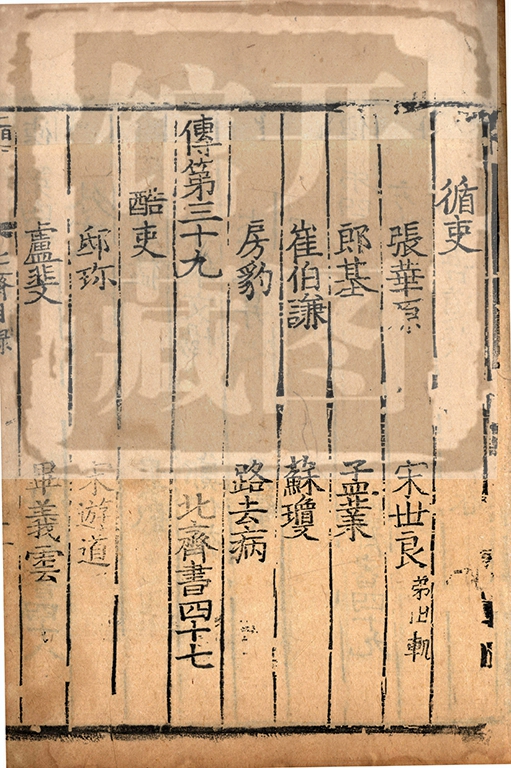 循吏
張華原 宋世良 弟世軌
郎基 孟業
崔伯謙 蘇瓊
房豹 路去病
傳第三十九 北齊書四十七
酷吏
邸珍 宋遊道
盧斐 畢義雲